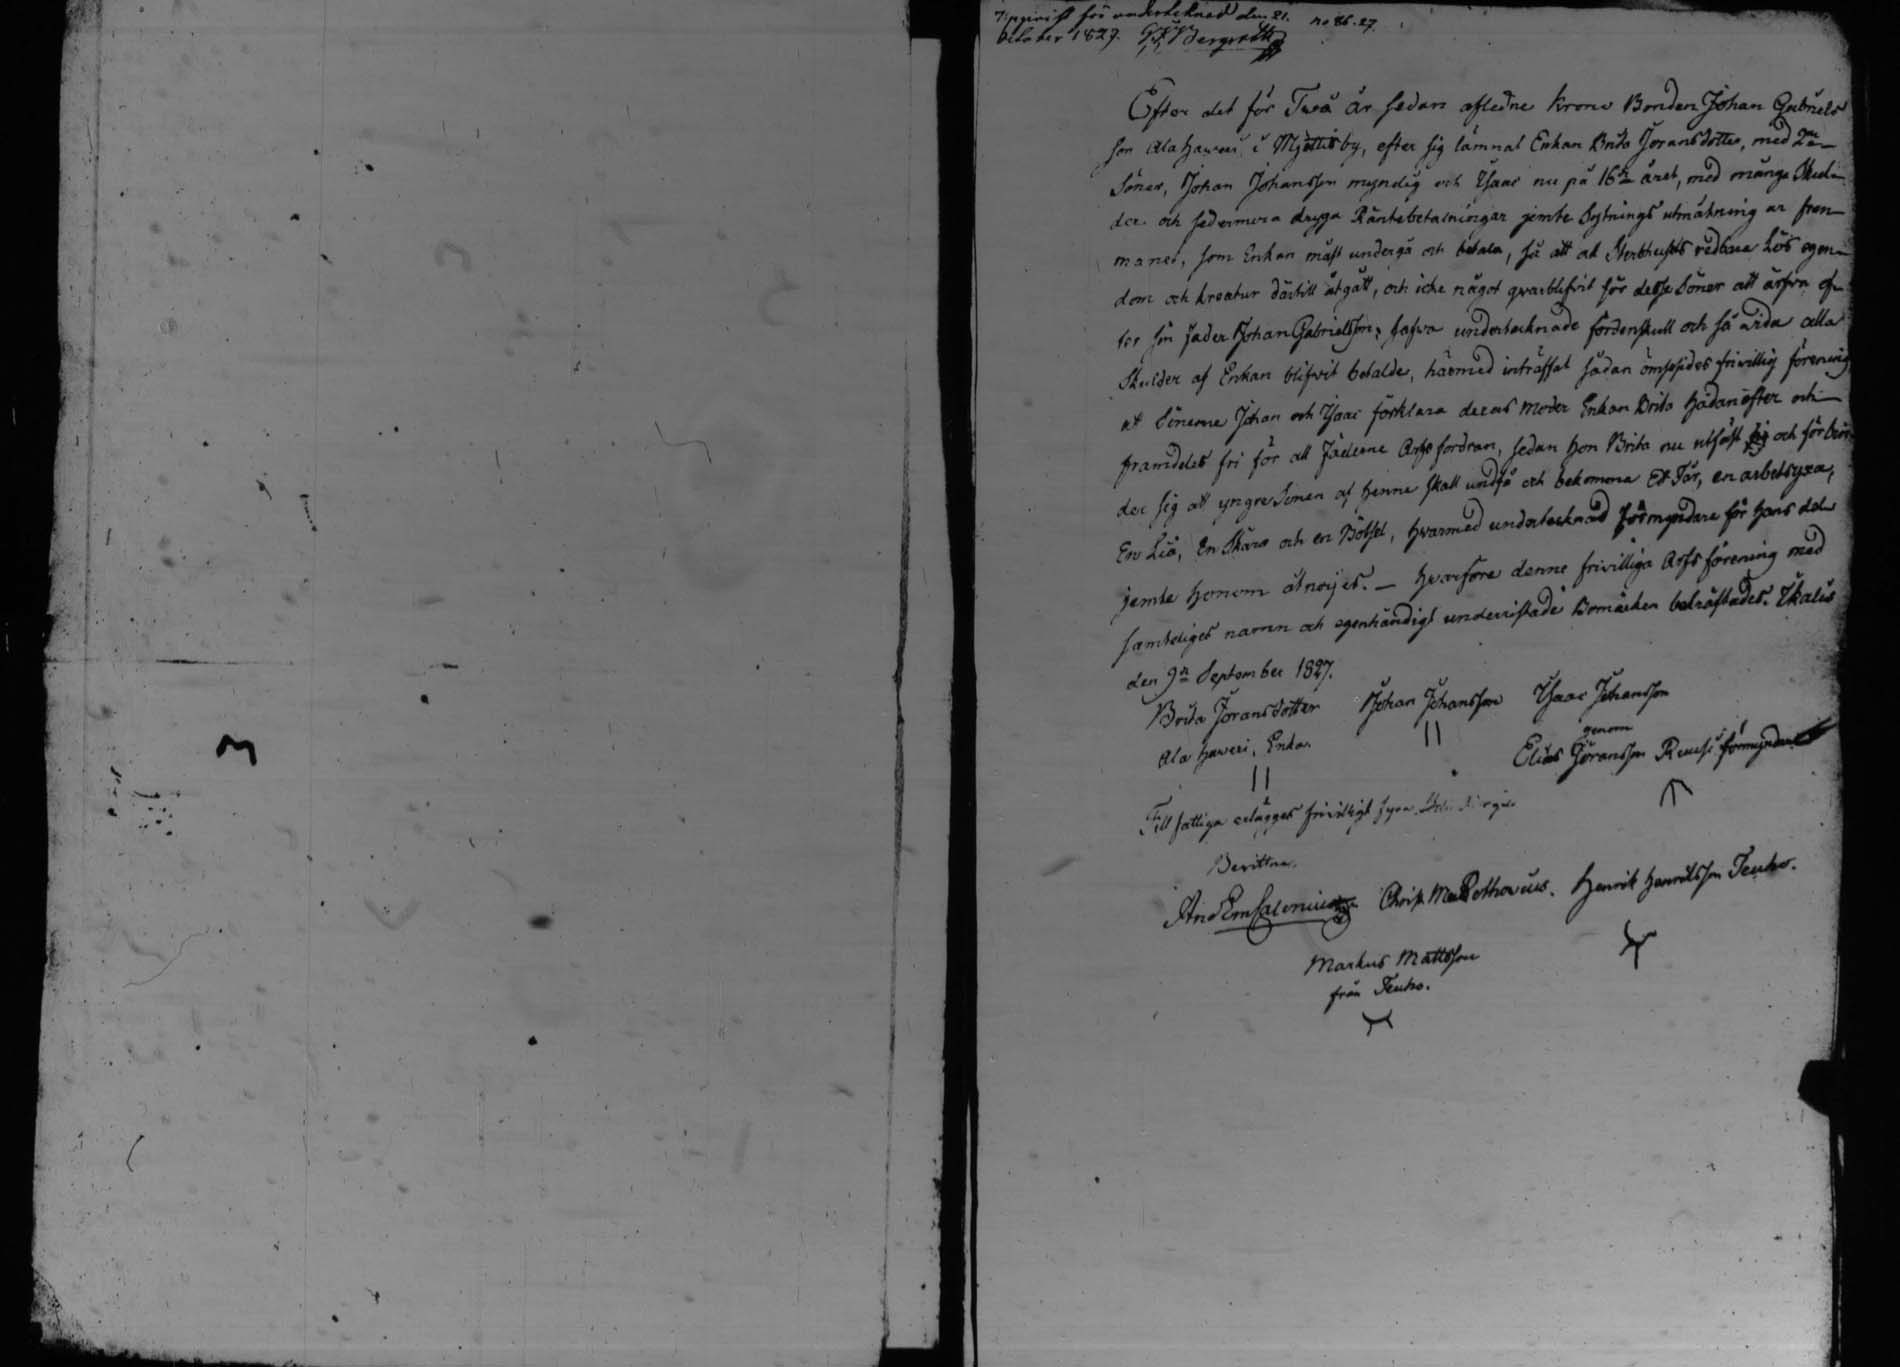 Uppvist för undertecknad den 21. no 86. 27.
October 1827. Bergroth
Efter det för Tvåå år sedan aflednе Krono Bonden Johan Gabriels
son Alahaweri i Mjettis by, efter sig lämnat Enkan Brita Joransdotter, med 2ne
Söner, Johan Johansson myndig och Isaac nu på 16de året, med många Skul-
der och sedermera dryga Räntebetalningar jemte Sytnings utmätning av fren-
maned, som Enkan måst undergå och betala, så att al Sterbhusets redbara Lös egen-
dom och kreatur därtill åtgått, och icke något qvarblifvit för desse Söner att ärfva ef-
ter sin fader Johan Gabrielsson; hafva undertecknade fördenskull och så vida alla
Skulder af Enkan blifvit betalde, härmed inträffat sådan ömsesides frivillig förening
at Sönerne Johan och Isaac förklara deras Moder Enkan Brita hädanefter och
framdeles fri för all Fäderne Arfs fordran, sedan hon Brita nu utfäst sig och förbin-
der sig att yngre Sonen af henne skall undfå och bekomma Et Får, en arbetsyxa,
En Liå, En Skära och en Bötsel, hvarmed undertecknad förmyndare för hans del
jemte honom åtnöijes. – Hvarföre denne frivilliga Arfs förening med
samteliges namn och egenhändigt underristade Bomärken bekräftades. Ikalis
den 9de September 1827.
Brita Joransdotter Johan Johansson Isaac Johansson
Ala haweri, Enka. genom
Elias Göransson Reuhs förmyndare
Till fattiga erlägges frivilligt fyra
Bevittna.
And Em Salenius Christ. Mathovius. Henrik Henriksson Teuho.
Markus Mattsson
från Teuho.